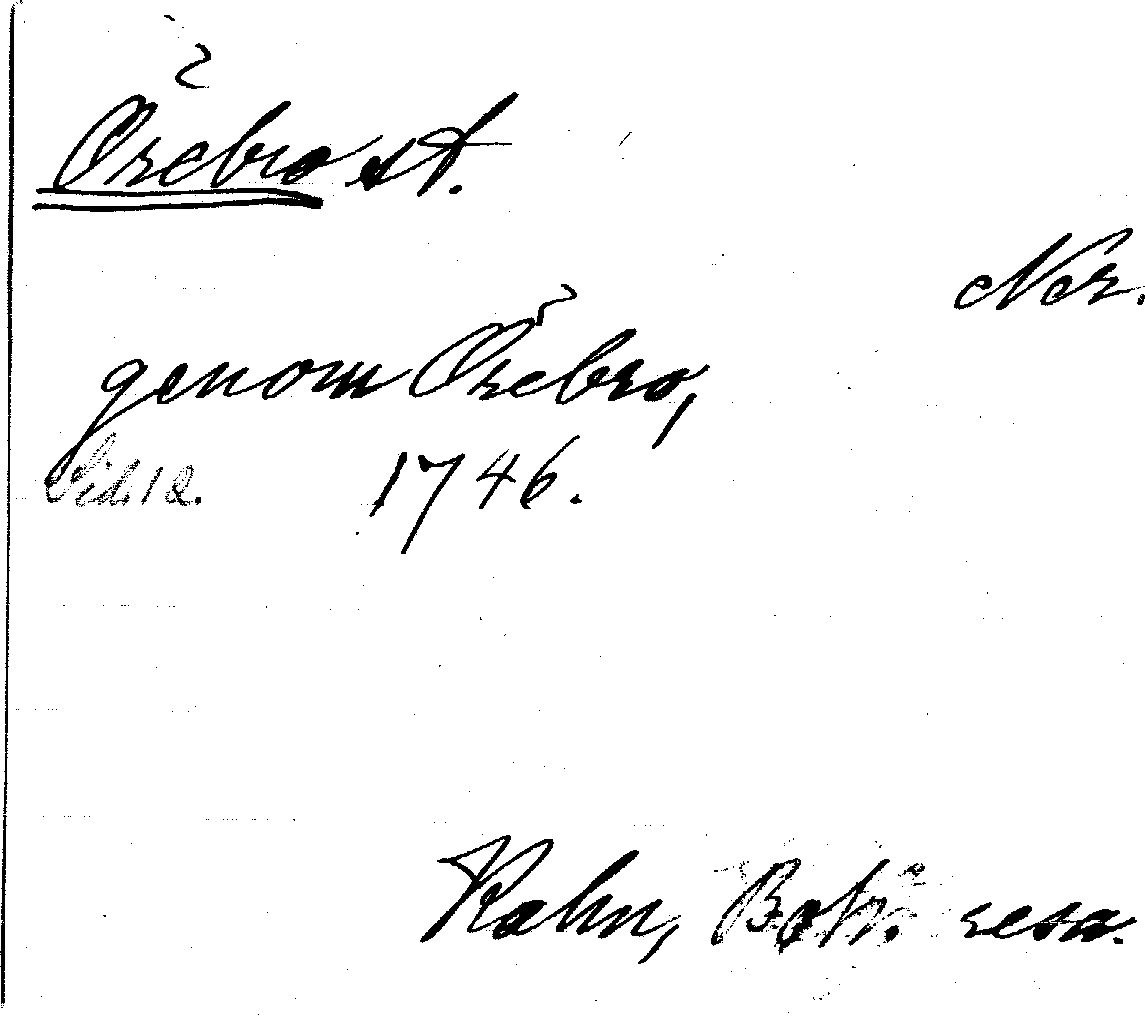 Örebro st.
Ner.
genom Örebro,
Sid. 12. 1746.
Kalm, resa.